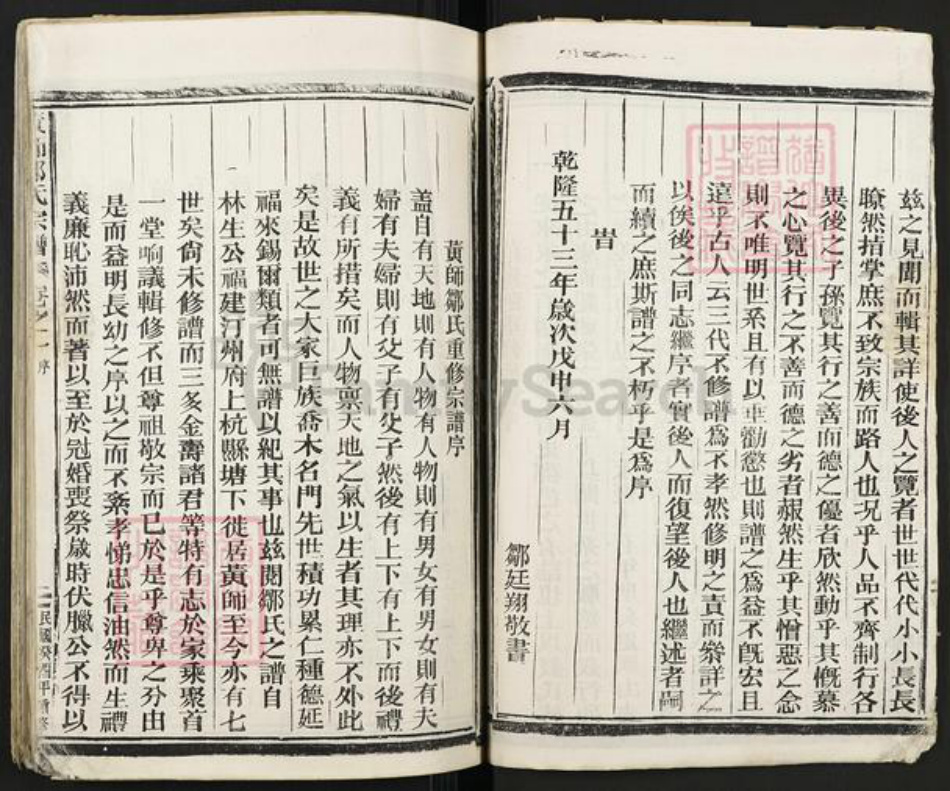 茲之見聞而輯其詳使後人之覽者世世代代小小長長
瞭然指掌庶不致宗族而路人也况乎人品不齊制行各
異後之子孫覽其行之善而德之優者欣然動乎其慨慕
之心覽其行之不善而德之劣者赧然生乎其憎惡之念
則不唯明世系且有以垂勸懲也則譜之為益不既宏且
遠乎古人云三代不修譜為不孝然修明之責而叅詳之
以俟後之同志繼序者實後人而復望後人也繼述者嗣
而續之庶斯譜之不朽乎是為序
旹
乾隆五十三年歲次戊申六月
鄒廷翔敬書
黃師鄒氏重修宗譜序
蓋自有天地則有人物有人物則有男女有男女則有夫
婦有夫婦則有父子有父子然後有上下有上下而後禮
義有所措矣而人物禀天地之氣以生者其理亦不外此
矣是故世之大家巨族喬木名門先世積功累仁種德延
福來錫爾類者可無譜以紀其事也茲閱鄒氏之譜自
林生公福建汀州府上杭縣塘下徙居黃師至今亦有七
世矣尙未修譜而三多金壽諸君等特有志於家乘聚首
一堂响議輯修不但尊祖敬宗而已於是乎尊卑之分由
是而益明長幼之序以之而不紊孝悌忠信油然而生禮
義廉恥沛然而著以至於冠婚喪祭歲時伏臘公不得以
鄒氏宗譜
序
民國癸酉年
FamilySearch